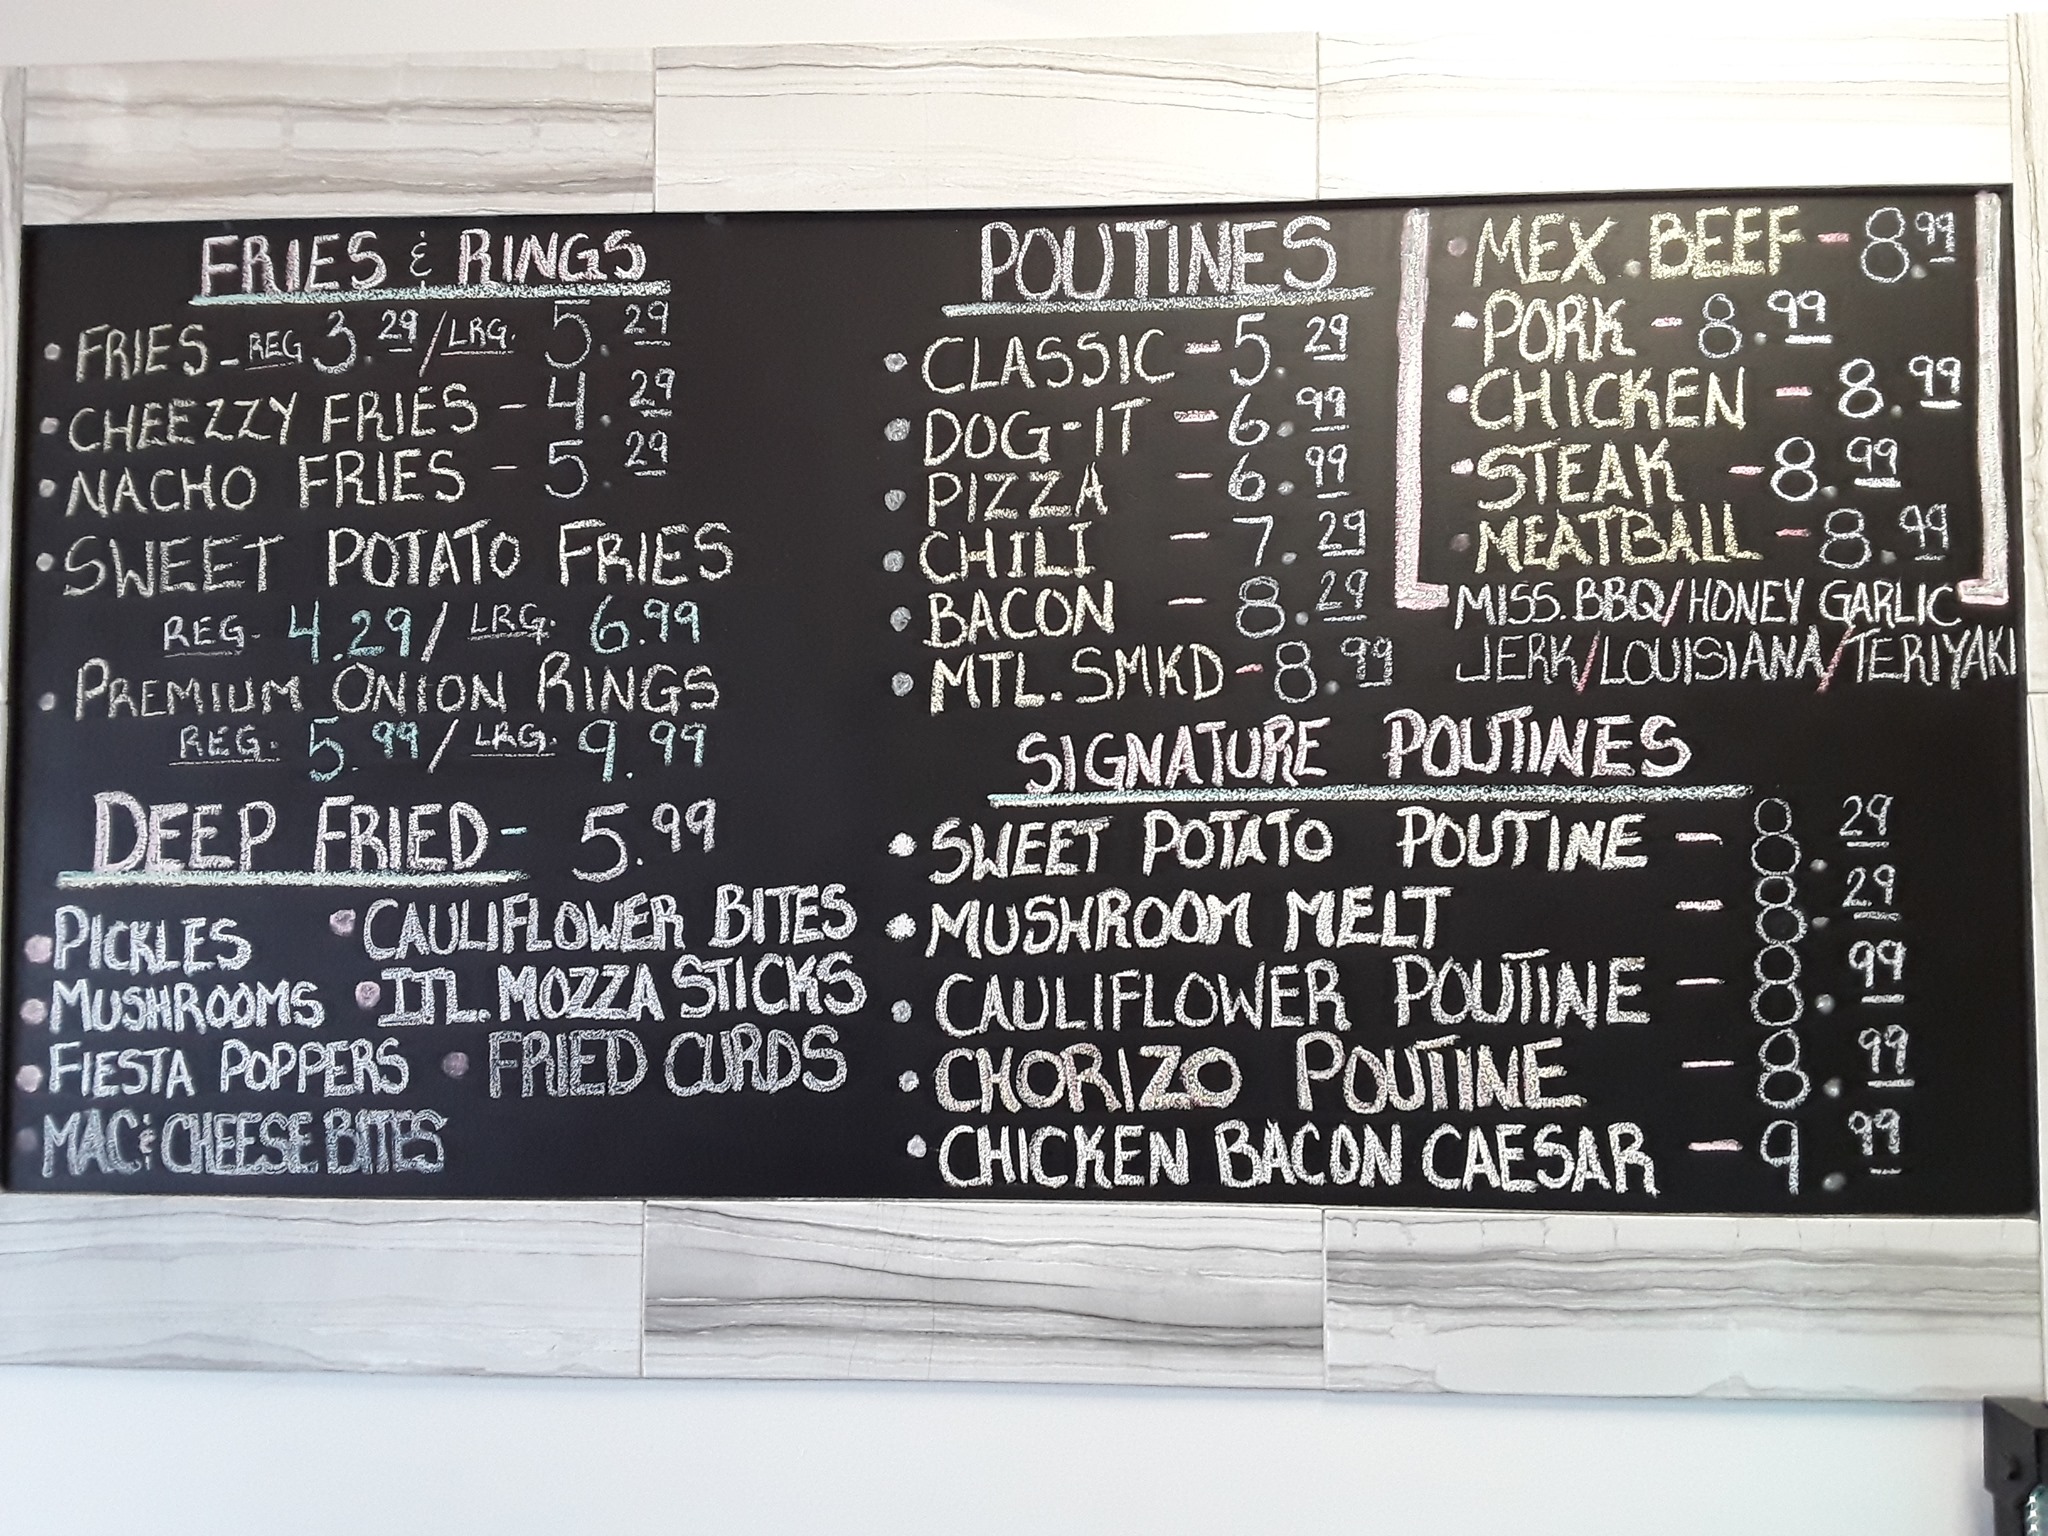 FRIES & RINGS
• FRIES - REG 3.29 / LRG. 5.29
• CHEEZZY FRIES - 4.29
• NACHO FRIES - 5.29
• SWEET POTATO FRIES
REG. 4.29 / LRG. 6.99
• PREMIUM ONION RINGS
REG. 5.99 / LRG. 9.99
DEEP FRIED - 5.99
• PICKLES
• MUSHROOMS
• FIESTA POPPERS
• MAC & CHEESE BITES
• CAULIFLOWER BITES
• ITL. MOZZA STICKS
• FRIED CURDS
POUTINES
• CLASSIC - 5.29
• DOG-IT - 6.99
• PIZZA - 6.99
• CHILI - 7.29
• BACON - 8.29
• MTL. SMKD - 8.99
• MEX. BEEF - 8.99
• PORK - 8.99
• CHICKEN - 8.99
• STEAK - 8.99
• MEATBALL - 8.99
MISS. BBQ/HONEY GARLIC
JERK/LOUISIANA/TERIYAKI
SIGNATURE POUTINES
• SWEET POTATO POUTINE - 8.29
• MUSHROOM MELT - 8.29
• CAULIFLOWER POUTINE - 8.99
• CHORIZO POUTINE - 8.99
• CHICKEN BACON CAESAR - 9.99